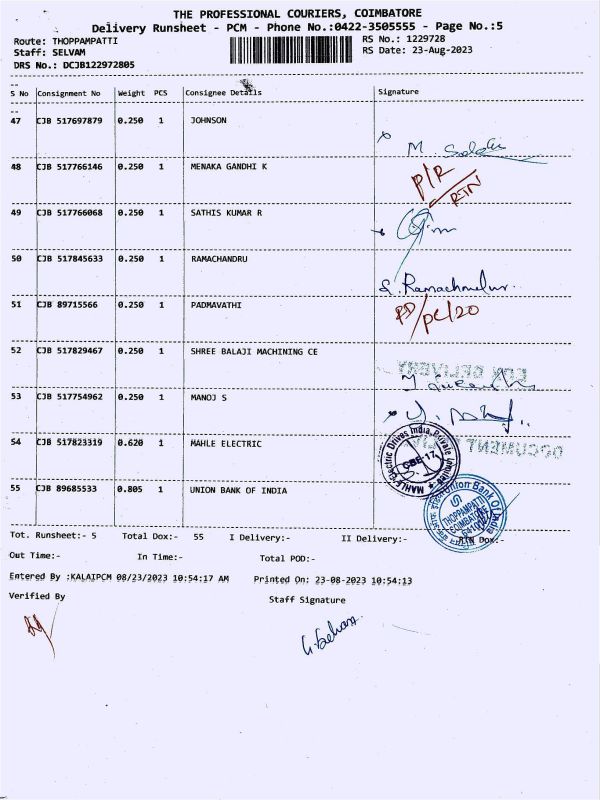 THE PROFESSIONAL COURIERS, COIMBATORE
Delivery Runsheet - PCM - Phone No.:0422-3505555 - Page No.:5
Route: THOPPAMPATTI RS No.: 1229728
Staff: SELVAM RS Date: 23-Aug-2023
DRS No.: DCJB122972805
S No Consignment No Weight PCS Consignee Details Signature
47 CJB 517697879 0.250 1 JOHNSON
M.
48 CJB 517766146 0.250 1 MENAKA GANDHI K
P/R
RTN
49 CJB 517766068 0.250 1 SATHIS KUMAR R
50 CJB 517845633 0.250 1 RAMACHANDRU
51 CJB 89715566 0.250 1 PADMAVATHI
52 CJB 517829467 0.250 1 SHREE BALAJI MACHINING CE
FOR DELIVERY
53 CJB 517754962 0.250 1 MANOJ S
54 CJB 517823319 0.620 1 MAHLE ELECTRIC
MAHLE Electric Drives India Private Limited
CBE-17
DOCUMENT
55 CJB 89685533 0.805 1 UNION BANK OF INDIA
Union Bank Of India
THOPPAMPATTI
COIMBATORE
Tot. Runsheet:- 5 Total Dox:- 55 I Delivery:- II Delivery:- RTN Dox:-
Out Time:- In Time:- Total POD:-
Entered By :KALAIPCM 08/23/2023 10:54:17 AM Printed On: 23-08-2023 10:54:13
Verified By Staff Signature